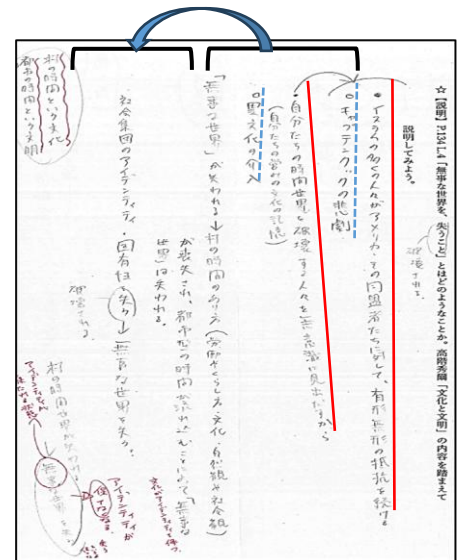 ☆【説明】P.134 L.4「無事な世界を、失うこと」とはどのようなことか。高階秀爾「文化と文明」の内容を踏まえて
説明してみよう。
破壊される。
・イスラムの多くの人々がアメリカ・その同盟者たちに対して、有形無形の抵抗を続ける
○キャプテンクックの悲劇
・自分たちの時間世界を破壊する人々を無意識に見出だすから
（自分たちの営みの文化の
○異文化の介入
「無事な世界」が失われる→村の時間のあり方（労働・くらし方・文化・自然観や社会観）
が喪失され、都市型の時間が流れ込むことによって「無事な
世界」は失われる。
・社会集団のアイデンティティ・固有性を失う→無事な世界を失う。
破壊される。
村の時間という文化
都市の時間という文明
村の時間世界が失われる
無事な世界を失う
アイデンティティが